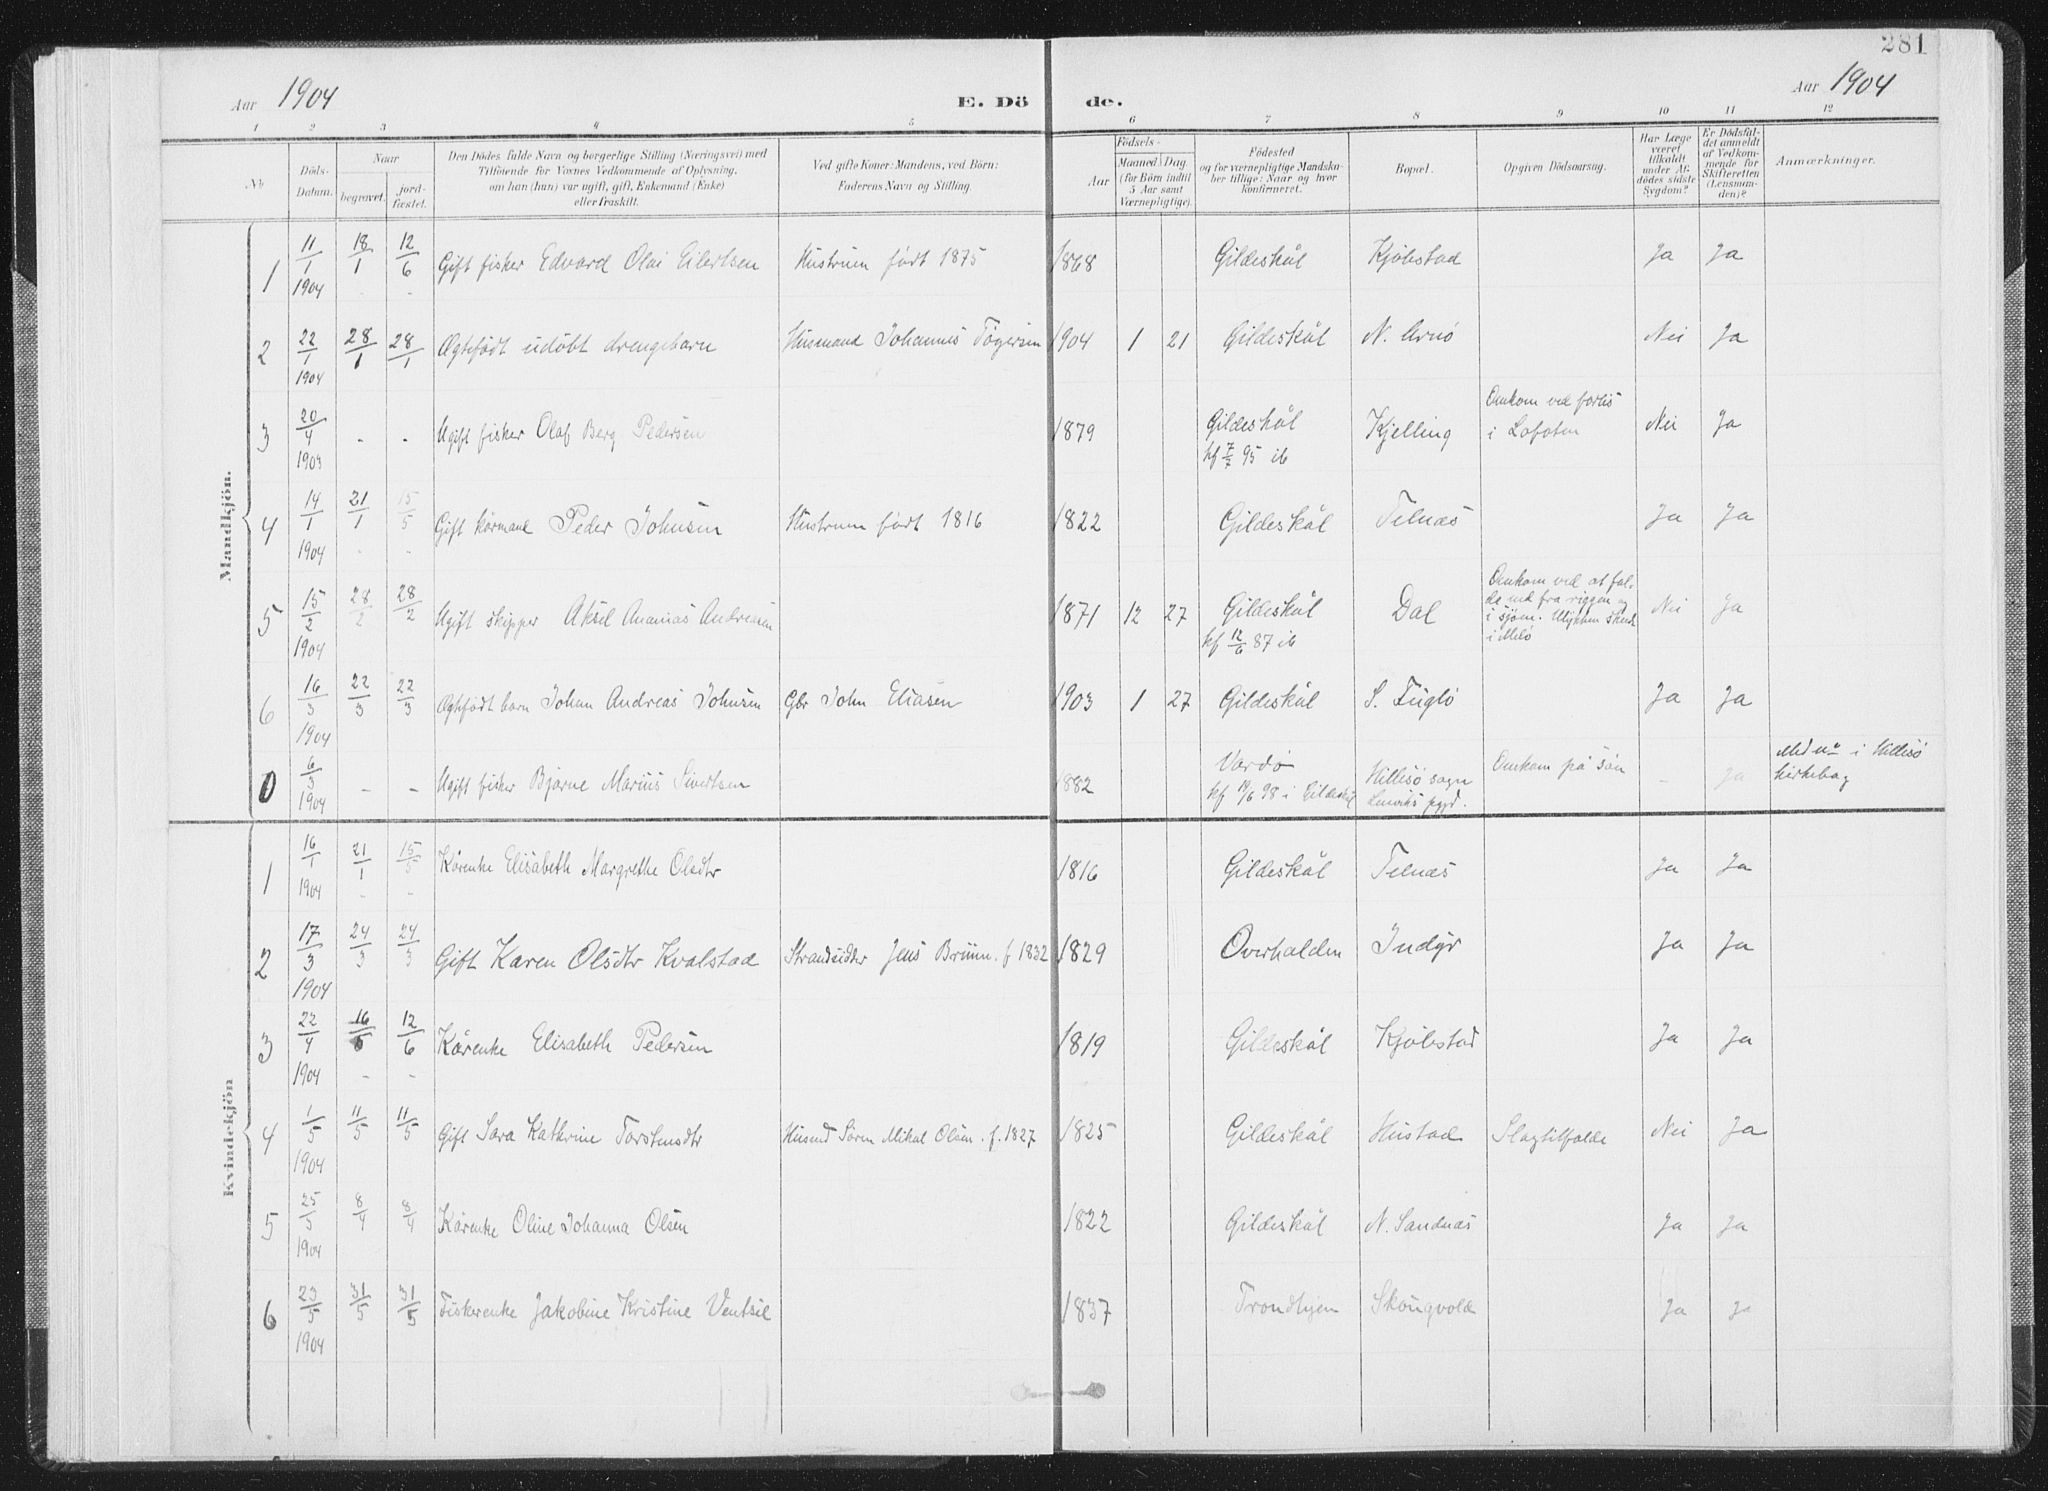 281
Aar 1904
E. Dö de.
Aar 1904
1 2 3 4 5 6 7 8 9 10 11 12
№
Döds-Datum.
Naar
begravet.
jordfæstet.
Den Dödes fulde Navn og borgerlige Stilling (Næringsvei) med
Tilföiende for Voxnes Vedkommende af Oplysning,
om han (hun) var ugift, gift, Enkemand (Enke)
eller fraskilt.
Ved gifte Koner: Mandens, ved Börn:
Faderens Navn og Stilling.
Födsels-
Aar
Maaned Dag
(for Börn indtil
5 Aar samt
Værnepligtige).
Födested
og for værnepligtige Mandskaber
tillige: Naar og hvor
konfirmeret.
Bopæl.
Opgiven Dödsaarsag.
Har Læge
været
tilkaldt
under Afdödes
sidste
Sygdom?
Er Dödsfaldet
anmeldt
af Vedkommende
for
Skifteretten
(Lensmanden)?
Anmærkninger.
Mandkjön.
1 11/1 1904 18/1 12/6 Gift fisker Edvard Olai Eilertsen Hustruen født 1875 1868 Gildeskål Kjöbstad Ja Ja
2 22/1 1904 28/1 28/1 Ægtefødt udöbt drengebarn Husmand Johannes Tögersen 1904 1 21 Gildeskål N. Arnö Nei Ja
3 20/4 1903 - - Ugift fisker Olaf Berg Pedersen 1879 Gildeskål Kjelling Omkom ved forlis Nei Ja
kf 7/7 95 ib i Lofoten
4 14/1 1904 21/1 15/5 Gift kårmand Peder Johnsen Hustruen født 1816 1822 Gildeskål Telnæs Ja Ja
5 15/2 1904 28/2 28/2 Ugift skipper Aksel Ananias Andreasen 1871 12 27 Gildeskål Dal Omkom ved at falde
ned fra riggen og Nei Ja
kf 12/6 87 ib i sjøen. Ulykken skede
i Melö
6 16/3 1904 22/3 22/3 Ægtefødt barn Johan Andreas Johnsen Gbr John Eliasen 1903 1 27 Gildeskål S. Fuglö Ja Ja
0 6/3 1904 - - Ugift fisker Bjarne Marius Sivertsen 1882 Vardö Hillesö sogn Omkom på sjön - Ja Med nº i Hillesö
kf 19/6 98 i Gildeskål Lenviks pgjd. kirkebog
Kvindekjön
1 16/1 1904 21/1 15/5 Kårenke Elisabeth Margrethe Olsdtr 1816 Gildeskål Telnæs Ja Ja
2 17/3 1904 24/3 24/3 Gift Karen Olsdtr Kvalstad Strandsidder Jens Bruun. f 1832 1829 Overhalden Indyr Ja Ja
3 22/4 1904 16/5 12/6 Kårenke Elisabeth Pedersen 1819 Gildeskål Kjöbstad Ja Ja
4 1/5 1904 11/5 11/5 Gift Sara Kathrine Torstensdtr Husmd Sören Mikal Olsen. f. 1827 1825 Gildeskål Hustad Slagtilfælde Nei Ja
5 25/3 1904 8/4 8/4 Kårenke Oline Johanna Olsen 1822 Gildeskål N. Sandnæs Ja Ja
6 23/5 1904 31/5 31/5 Fiskerenke Jakobine Kristine Ventsel 1837 Trondhjem Skougvold Ja Ja